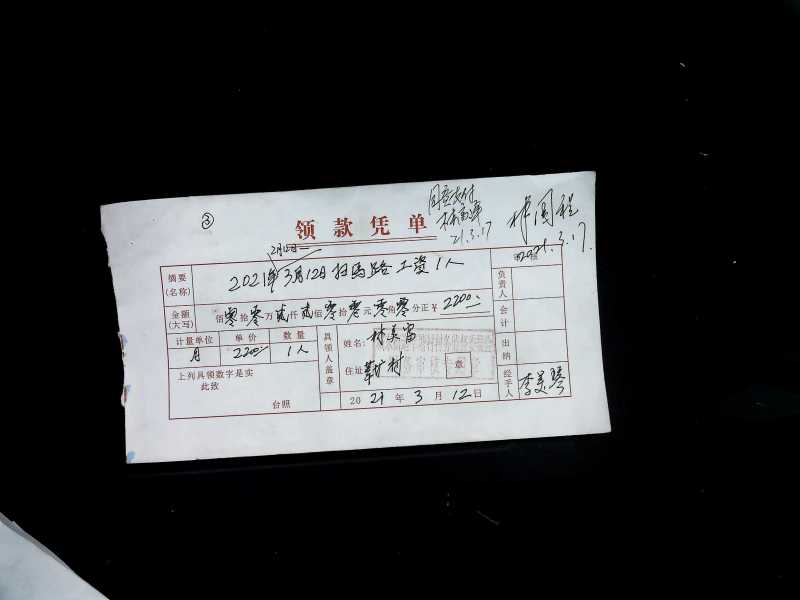 ③
领款凭单
同意支付
21.3.17
2021.3.17.
2月12日—
摘要
(名称)
2021年3月12日扫马路工资1人
审核
负责人
金额
(大写)
佰零拾零万贰仟贰佰零拾零元零角零分正￥2200
会计
计量单位 单价 数量
月 2200 1人
具领人盖章
姓名: 林美富
住址 草圹村
章
出纳
上列具领数字是实
此致
台照
2021年3月12日
经手人
李美琴